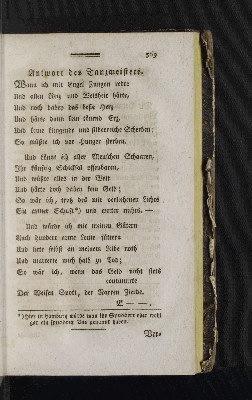 569
Antwort des Tanzmeisters.
Wann ich mit Engel Zungen redte
Und allen Witz und Weisheit hätte,
Und noch dabey das beste Herz
Und hätte dann kein klingend Erz,
Und keine klingende und silberreiche Scherben;
So müßte ich vor Hunger sterben.
Und könnt ich aller Menschen Schaaren,
Ihr künftig Schicksal offenbaren,
Und wüßte alles in der Welt
Und hätte doch dabey kein Geld;
So wär ich, trotz des mir verliehenen Lichts
Ein armer *) und weiter nichts. —
Und würde ich mit meinen Gütern
Noch hundert arme Leute füttern
Und litte selbst an meinem Leibe noth
Und marterte mich halb zu Tod;
So wär ich, wenn das Geld nicht stets
Der Weisen Spott, der Narren Zierde.
L — —.
*) Hier in Hamburg würde man
genannt haben.
Ver-